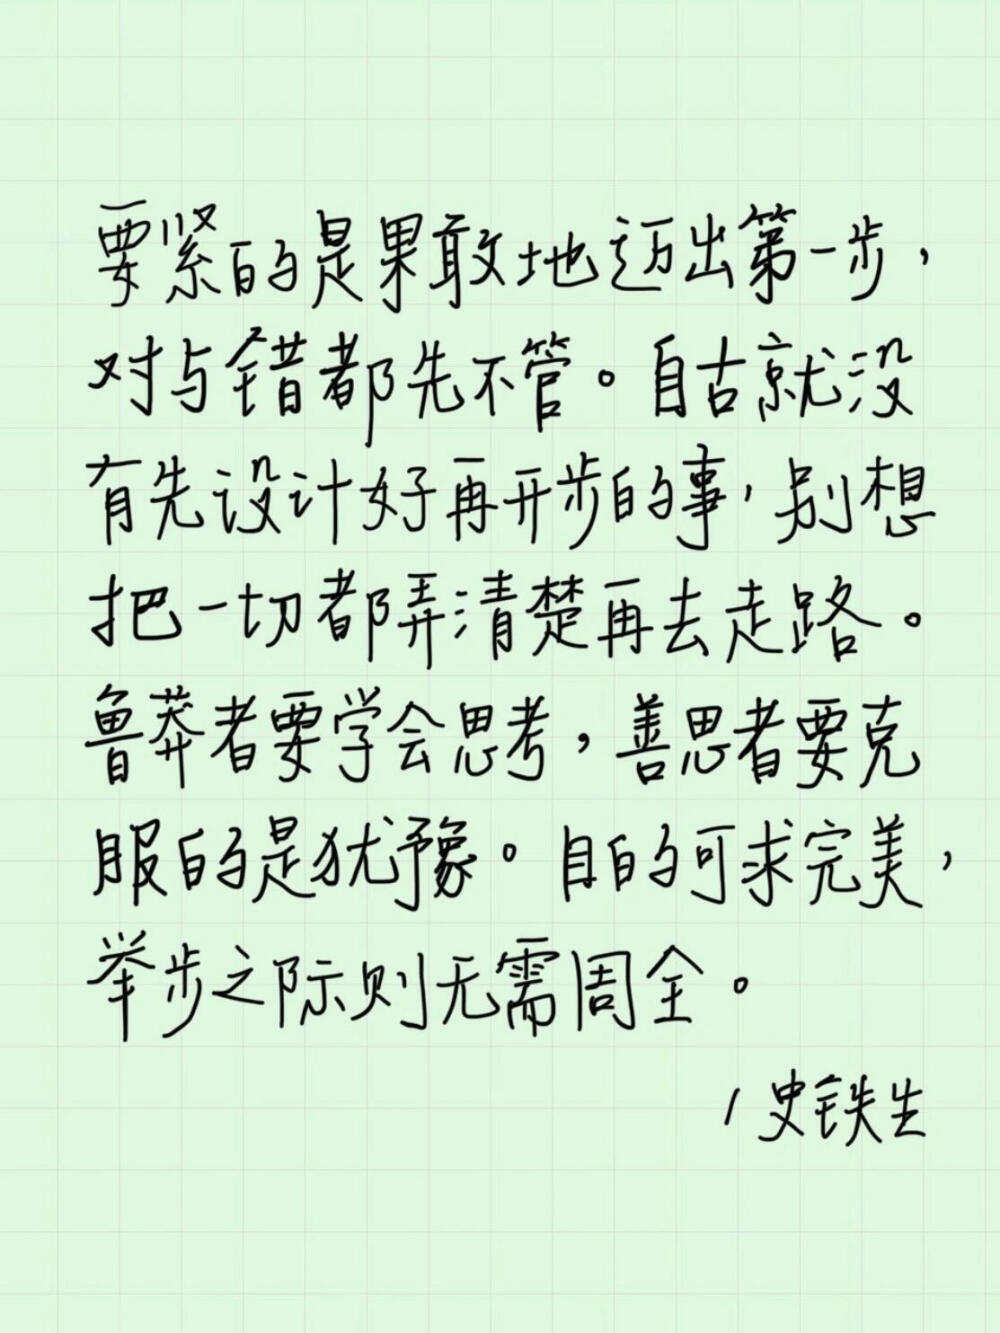 要紧的是果敢地迈出第一步，
对与错都先不管。自古就没
有先设计好再开步的事，别想
把一切都弄清楚再去走路。
鲁莽者要学会思考，善思者要克
服的是犹豫。目的可求完美，
举步之际则无需周全。
/ 史铁生